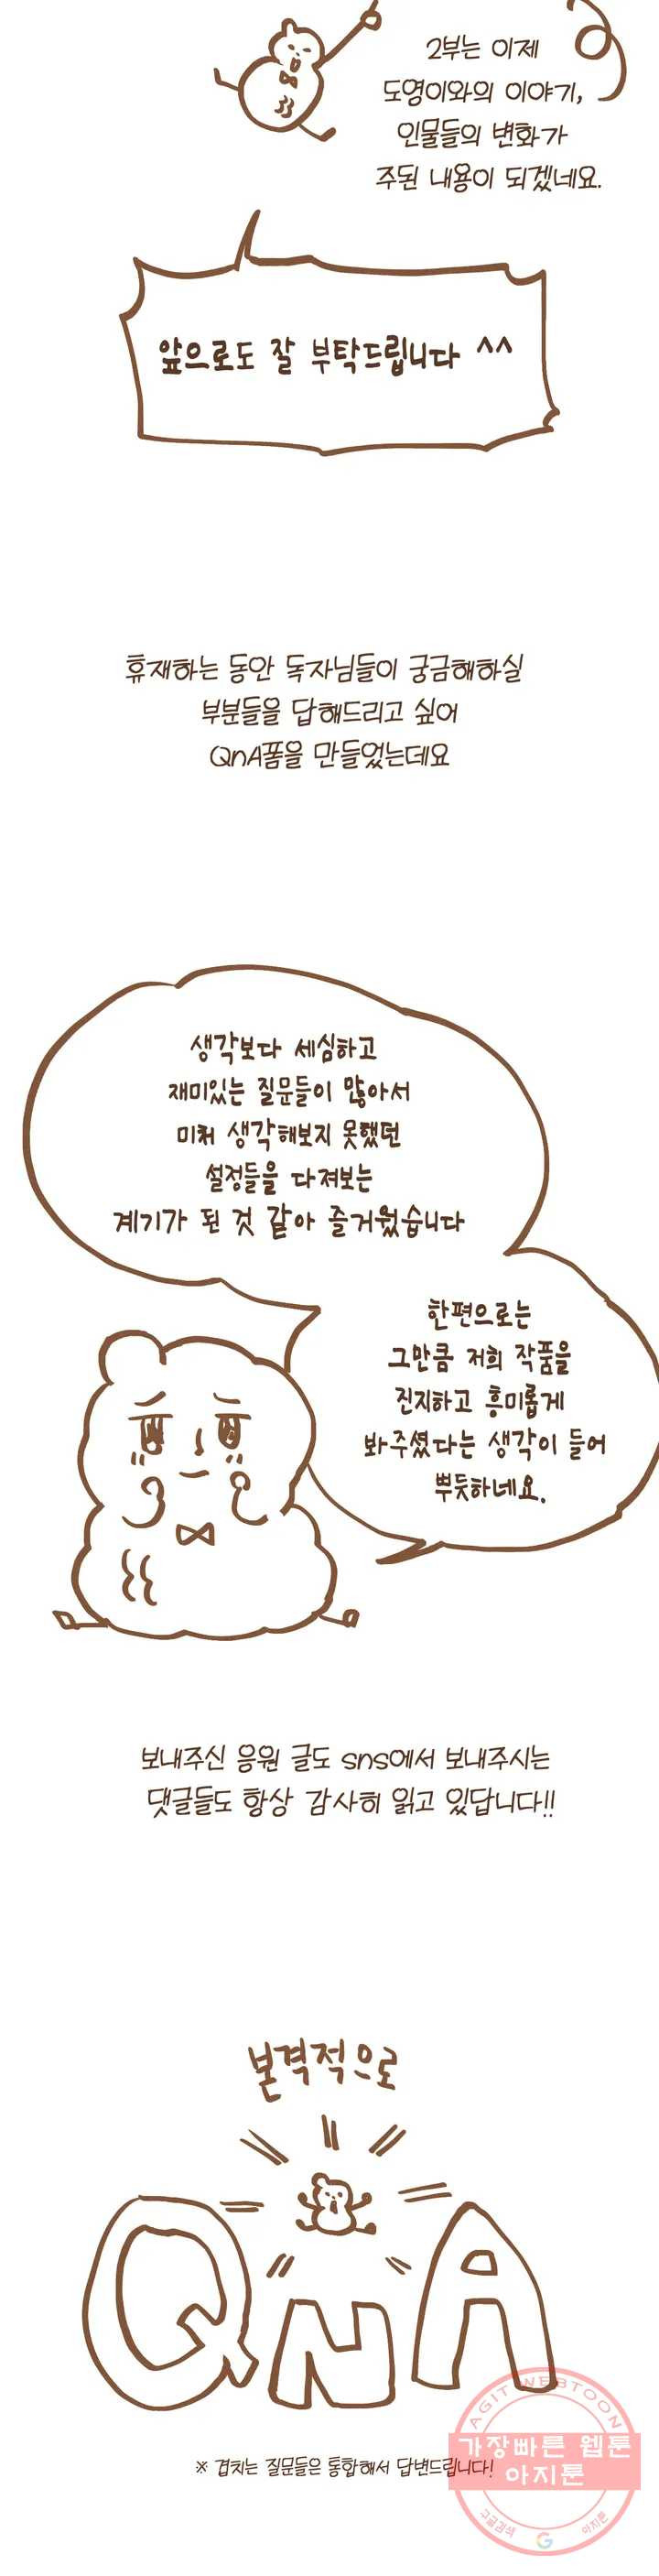 2부는 이제
도영이와의 이야기,
인물들의 변화가
주된 내용이 되겠네요.
앞으로도 잘 부탁드립니다 ^^
휴재하는 동안 독자님들이 궁금해하실
부분들을 답해드리고 싶어
QnA폼을 만들었는데요
생각보다 세심하고
재미있는 질문들이 많아서
미처 생각해보지 못했던
설정들을 다져보는
계기가 된 것 같아 즐거웠습니다
한편으로는
그만큼 저희 작품을
진지하고 흥미롭게
봐주셨다는 생각이 들어
뿌듯하네요.
보내주신 응원 글도 sns에서 보내주시는
댓글들도 항상 감사히 읽고 있답니다!!
본격적으로
QnA
※ 겹치는 질문들은 통합해서 답변드립니다!
AGIT WEBTOON
가장빠른 웹툰
아지툰
구글검색 G 아지툰